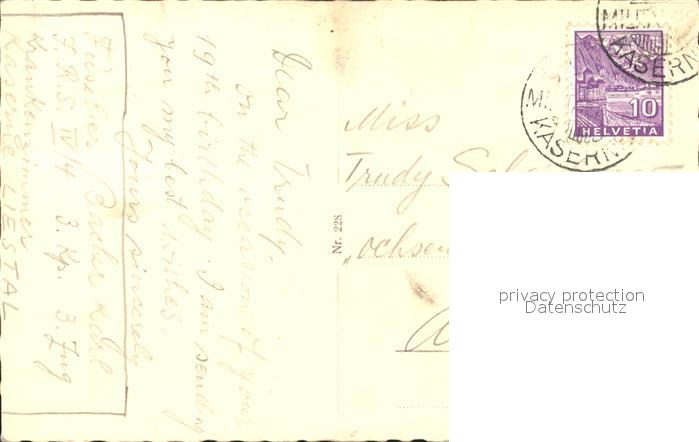 Dear Trudy,
On the occasion of your
19th birthday I am sending
you my best wishes.
Yours sincerely
Füsilier Bacher Karl
I.R.S. IV/4 3. Kp. 3. Zug
Krankenzimmer
Kaserne LIESTAL
Nr. 228
Miss
Trudy
„Ochsen
MILIT
KASERN
MIL
KASERN
10
HELVETIA
privacy protection
Datenschutz